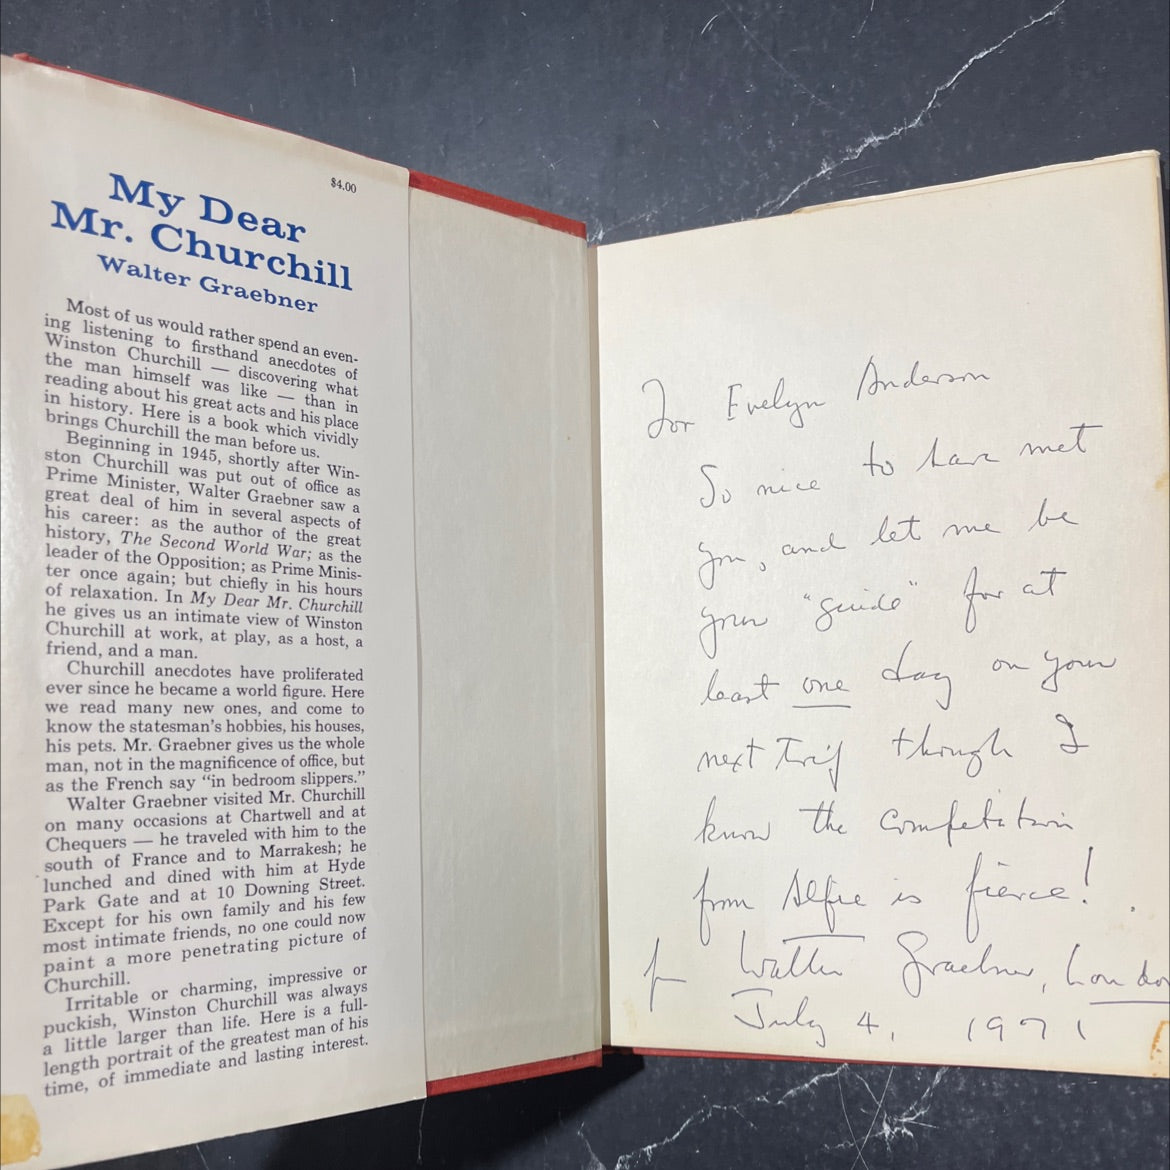 $4.00
My Dear
Mr. Churchill
Walter Graebner
Most of us would rather spend an even-
ing listening to firsthand anecdotes of
Winston Churchill — discovering what
the man himself was like — than in
reading about his great acts and his place
in history. Here is a book which vividly
brings Churchill the man before us.
Beginning in 1945, shortly after Win-
ston Churchill was put out of office as
Prime Minister, Walter Graebner saw a
great deal of him in several aspects of
his career: as the author of the great
history, The Second World War; as the
leader of the Opposition; as Prime Minis-
ter once again; but chiefly in his hours
of relaxation. In My Dear Mr. Churchill
he gives us an intimate view of Winston
Churchill at work, at play, as a host, a
friend, and a man.
Churchill anecdotes have proliferated
ever since he became a world figure. Here
we read many new ones, and come to
know the statesman's hobbies, his houses,
his pets. Mr. Graebner gives us the whole
man, not in the magnificence of office, but
as the French say "in bedroom slippers."
Walter Graebner visited Mr. Churchill
on many occasions at Chartwell and at
Chequers — he traveled with him to the
south of France and to Marrakesh; he
lunched and dined with him at Hyde
Park Gate and at 10 Downing Street.
Except for his own family and his few
most intimate friends, no one could now
paint a more penetrating picture of
Churchill.
Irritable or charming, impressive or
puckish, Winston Churchill was always
a little larger than life. Here is a full-
length portrait of the greatest man of his
time, of immediate and lasting interest.
For Evelyn Anderson
So nice to have met
you, and let me be
your "guide" for at
least one day on your
next trip though I
know the competition
from Alfie is fierce!
Walter Graebner, London
July 4, 1971